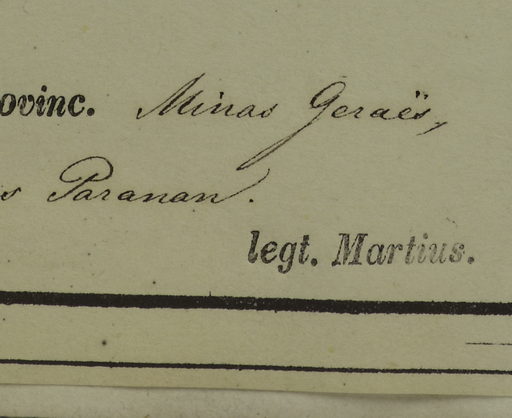 ovinc. Minas Geraës,
s Paranan.
legt. Martius.